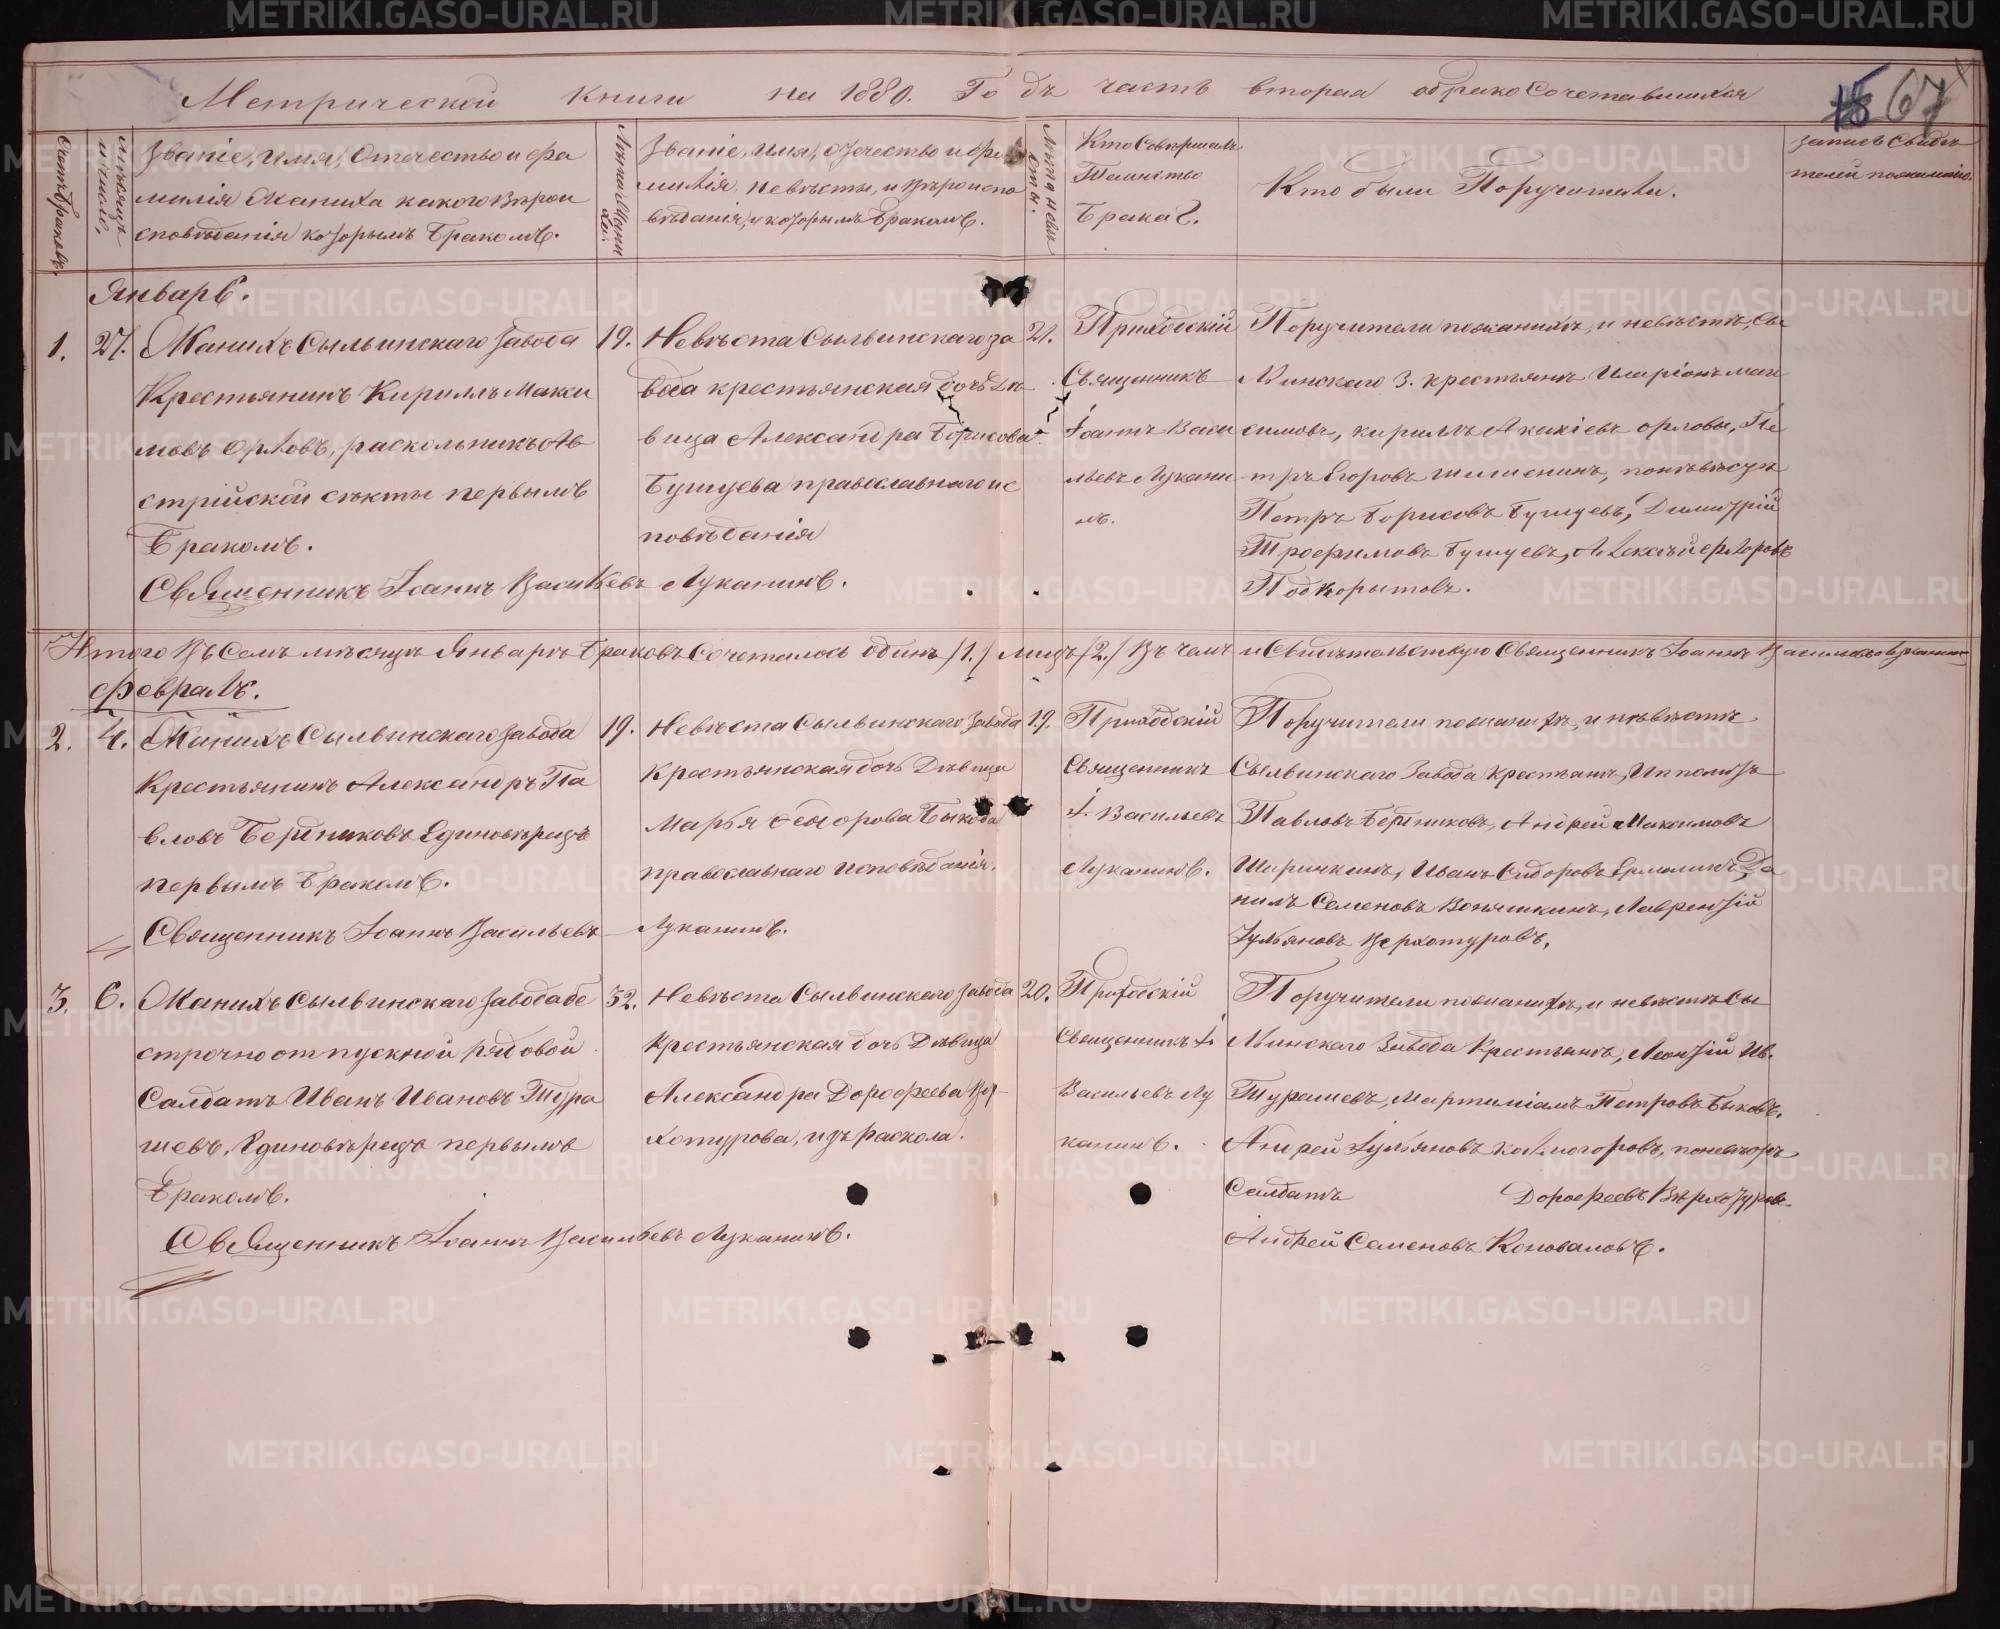 Метрической книги на 1880. Годъ часть вторая обракосочетавшихся
67
Счетъ браковъ.
Мѣсяцъ и число.
Званіе, имя, Отечество и фа
милія жениха какого вѣрои
сповѣданія которымъ бракомъ.
Лѣта жениха.
Званіе, имя, отечество и фа
милія невѣсты, и вѣроиспо
вѣданія, и которымъ бракомъ.
Лѣта невѣсты.
Кто Совершалъ
Таинство
Брака?.
Кто были Поручители.
запись Свидѣ
телей пожеланію.
Январь.
1. 27. Женихъ Сылвинскаго завода
Крестьянинъ Кириллъ Макси
мовъ Орловъ, раскольникъ Ав
стрійской секты первымъ
бракомъ.
19. Невѣста Сылвинскаго за
вода крестьянская дочь дѣ
вица Александра Борисова
Бушуева православнаго ис
повѣданія
21. Приходскій
Священникъ
Іоаннъ Васи
льевъ Лукани
нъ.
Поручители пожених, и невѣстѣ, Сы
лвинскаго З. крестьянъ Иларіонъ Мак
симовъ, кирилъ Акакіевъ орловы, Пе
тръ Егоровъ поневѣстѣ
Петръ Борисовъ Бушуевъ, Димитрій
Трофимовъ Бушуевъ, Алексѣй Флоровъ
Подкорытовъ.
Священникъ Іоаннъ Васильевъ Луканинъ.
Итого Въ Семъ мѣсяцѣ Январѣ браковъ Сочеталось одинъ /1./ лицъ /2./ Въ чемъ и Свидѣтельствую Священникъ Іоаннъ Васильевъ Луканинъ
Февраль.
2. 4. Женихъ Сылвинскаго завода
Крестьянинъ Александръ Па
вловъ Бердниковъ Единовѣрецъ
первымъ бракомъ.
19. Невѣста Сылвинскаго завода
Крестьянская дочь Дѣвица
Марья Ѳедорова Быкова
православнаго исповѣданія.
19. Приходскій
Священникъ
І. Васильевъ
Луканинъ.
Поручители поженихѣ, и невѣстѣ
Сылвинскаго Завода крестьянъ, Ипполитъ
Павловъ Бердниковъ, Андрей Максимовъ
Ширинкинъ, Иванъ Сидоровъ Ермолинъ, Да
нилъ Семеновъ Вопяшкинъ, Лаврентій
Ульяновъ Верхотуровъ.
Священникъ Іоаннъ Васильевъ Луканинъ.
3. 6. Женихъ Сылвинскаго завода бе
срочно отпускной рядовой
Солдатъ Иванъ Ивановъ Тура
шевъ, Единовѣрецъ первымъ
бракомъ.
32. Невѣста Сылвинскаго завода
крестьянская дочь Дѣвица
Александра Дорофеева Вер
хотурова, изъ раскола.
20. Приходскій
Священникъ І.
Васильевъ Лу
канинъ.
Поручители поженихѣ, и невѣстѣ Сы
лвинскаго Завода Крестьянъ, Леонтій Ив.
Турашевъ, Мартиміамъ Петровъ Быковъ.
Андрей Ульяновъ колмогоровъ, поневѣстѣ
Солдатъ Дорофеевъ Верхотуровъ
Андрей Семеновъ Коноваловъ.
Священникъ Іоаннъ Васильевъ Луканинъ.
METRIKI.GASO-URAL.RU